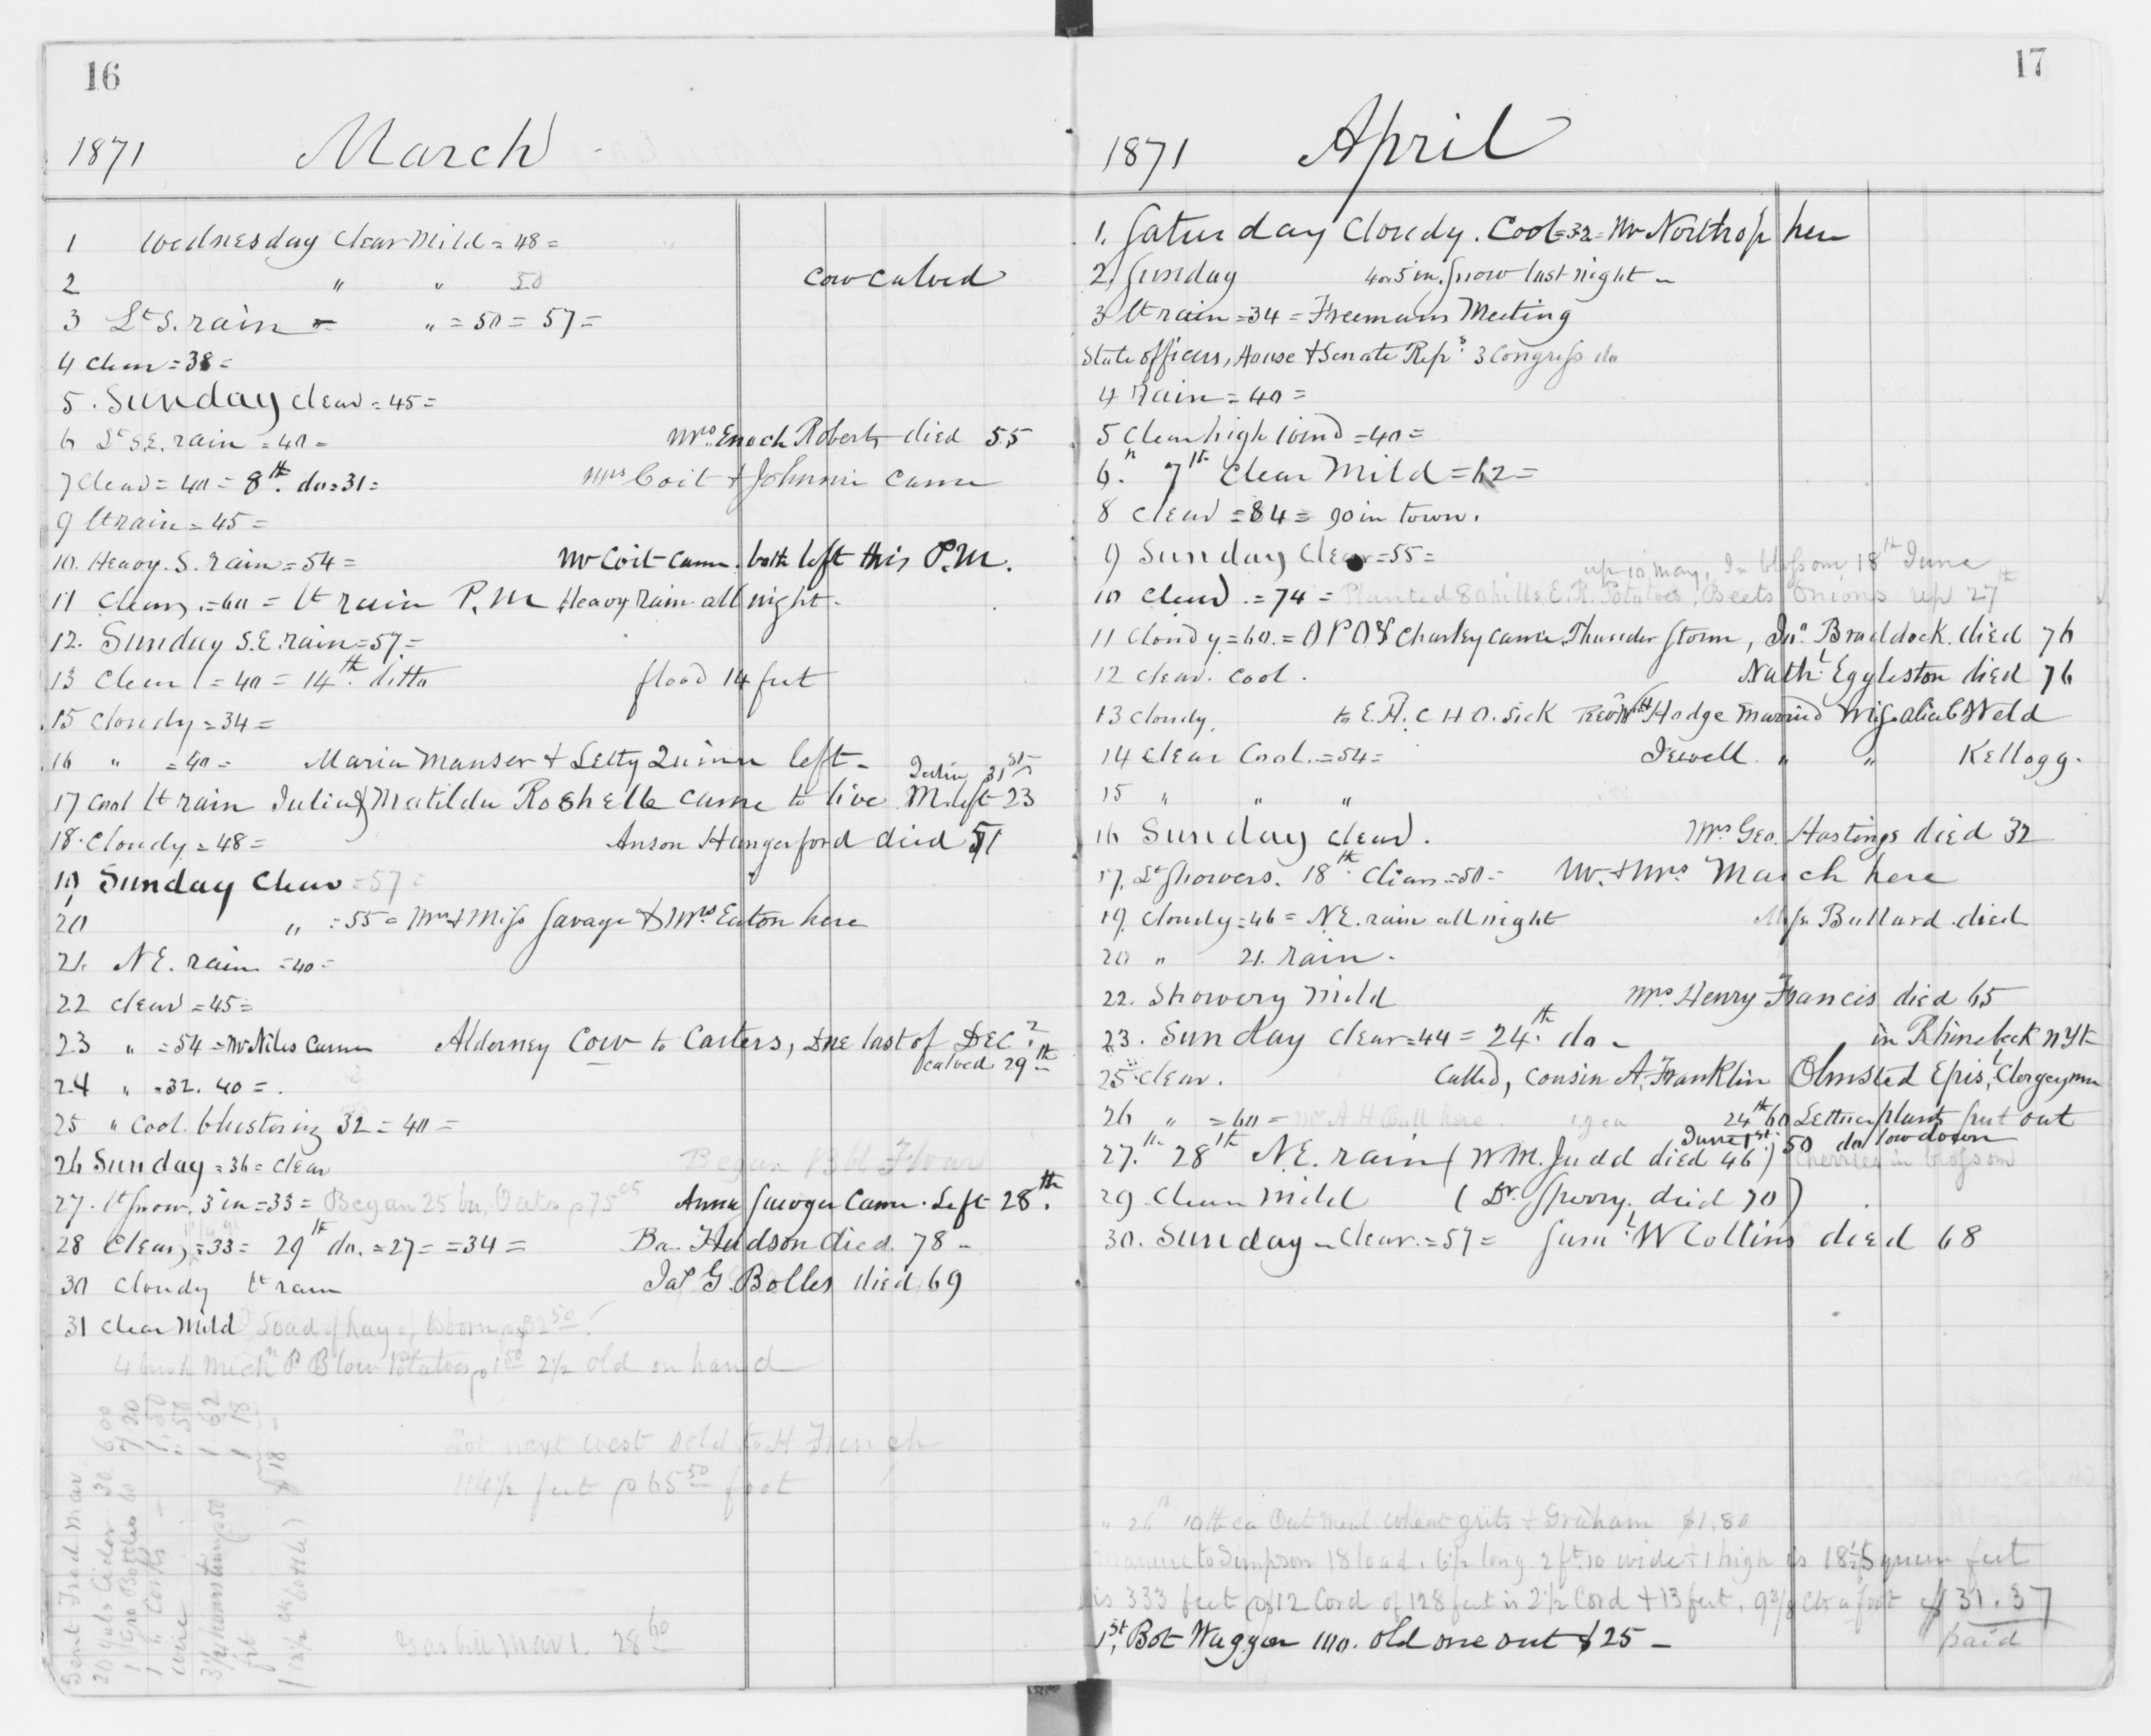 16
1871 March
1 Wednesday Clear Mild = 48 =
2 " " 50 Cow calved
3 Lt S. rain = " = 50 = 57 =
4 Clear = 38 =
5. Sunday clear = 45 =
6 Lt S.E. rain = 40 = Mrs. Enoch Roberts died 55
7 Clear = 40 = 8th. do = 31 = Mrs Coit & Johnnie came
9 lt rain = 45 =
10. Heavy. S. rain = 54 = Mr Coit came. both left this P.M.
11 Clear, = 60 = lt rain P.M Heavy rain all night.
12. Sunday S.E. rain = 57 =
13 Clear = 40 = 14th. ditto flood 14 feet
15 Cloudy = 34 =
16 " = 40 = Maria Manser & Letty Quinn left =
31st
17 Cool lt rain Julia & Matilda Roshelle came to live M. left 23
18. Cloudy. = 48 = Anson Hungerford died 51
19 Sunday Clear = 57 =
20 " = 55 = Mrs & Miss Savage & Mrs. Eaton here
21. N E. rain = 40 =
22 clear = 45 =
23 " = 54 = Mr Niles came Alderney Cow to Carters, due last of Dec?
calved 29th
24 " = 32. 40 = .
25 " Cool. blustering 32 = 40 =
26 Sunday = 36 = clear Began Bbl Flour
27. lt Snow. 3 in = 33 = Began 25 bu. Oats p 75 cts Anna came. Left 28th.
28 Clear, = 33 = 29th do. = 27 = = 34 = Ba. Hudson died. 78 -
30 Cloudy lt rain Jas G. Bolles died 69
31 clear Mild Load of hay of Osborn 32 50
4 bush Michn P. Blow Potatoes p 1 50 2 1/2 old on hand
Lot next west sold to H French
114 1/2 feet p 65 50 foot
Gas bill Mar 1. 28 60
Sent Fred Mar
20 gals Cider 30 6 00
1 Gro Bottles 7 20
1 " Corks 1. 50
wire " 50
3 1/4 1 62
frt 1 18
(12 1/2 cts bottle) $18 -
17
1871 April
1. Saturday Cloudy. Cool = 32 = Mr Northrop here
2. Sunday 4 or 5 in. Snow last night -
3 lt rain = 34 = Freemans Meeting
State officers, House & Senate Reps. 3 Congress do
4 Rain = 40 =
5 Clear high wind = 40 =
6. " 7th Clear Mild = 62 =
8 clear = 84 = 90 in town.
9 Sunday Clear = 55 =
up 10 May, In blossom 18th June
10 clear . = 74 = Planted 80 hills E. R. Potatoes, Beets Onions up 27th
11 Cloudy = 60. = O P O & Charley came Thunder Storm, Jno. Braddock. died 76
12 clear. cool. Nathl. Eggleston died 76
13 Cloudy. to E. H. C H O. Sick Revd Hodge married Miss Alice Weld
14 clear Cool. = 54 = Jewell " " Kellogg.
15 " " "
16 Sunday clear. Mrs Geo. Hastings died 32
17. Lt Showers. 18th. Clear = 50 = Mr. & Mrs. March here
19. Cloudy = 46 = N.E. rain all night Miss Bullard died
20 " 21. rain.
22. Showery mild Mrs Henry Francis died 65
23. Sunday Clear = 44 = 24th. do - in Rhinebeck N Yk
25 clear. Called, cousin A. Franklin Olmsted Episl Clergeyman
26 " = 60 = Mr A H Bull here 24th 60 Lettuce plants put out
June 1st. 50 do low down
27.th 28th N.E. rain (W M. Judd died 46) Cherries in blossom
29 Clear mild (Dr. Sperry. died 70)
30. Sunday - Clear. = 57 = Saml. W Collins died 68
" 26th 10 lb ea Oat Meal wheat grits & Graham $1.80
Manure to Simpson 18 load. 6 1/2 long 2 ft 10 wide & 1 high is 18 1/2 Square feet
is 333 feet p $12 Cord of 128 feet is 2 1/2 Cord & 13 feet. 9 3/8 cts a foot $31.37
paid
1st, Bot Waggon no. old one out $25 -